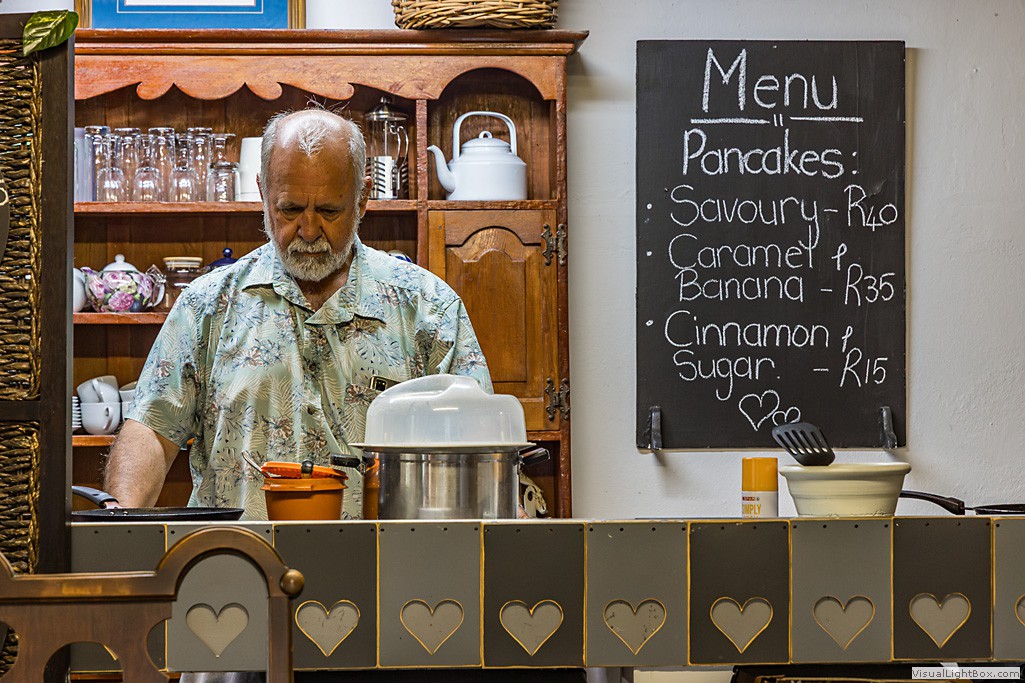 Menu
Pancakes:
Savoury - R40
Caramel &
Banana - R35
Cinnamon &
Sugar. -- R15
IMPLY
VisualLightBox.com